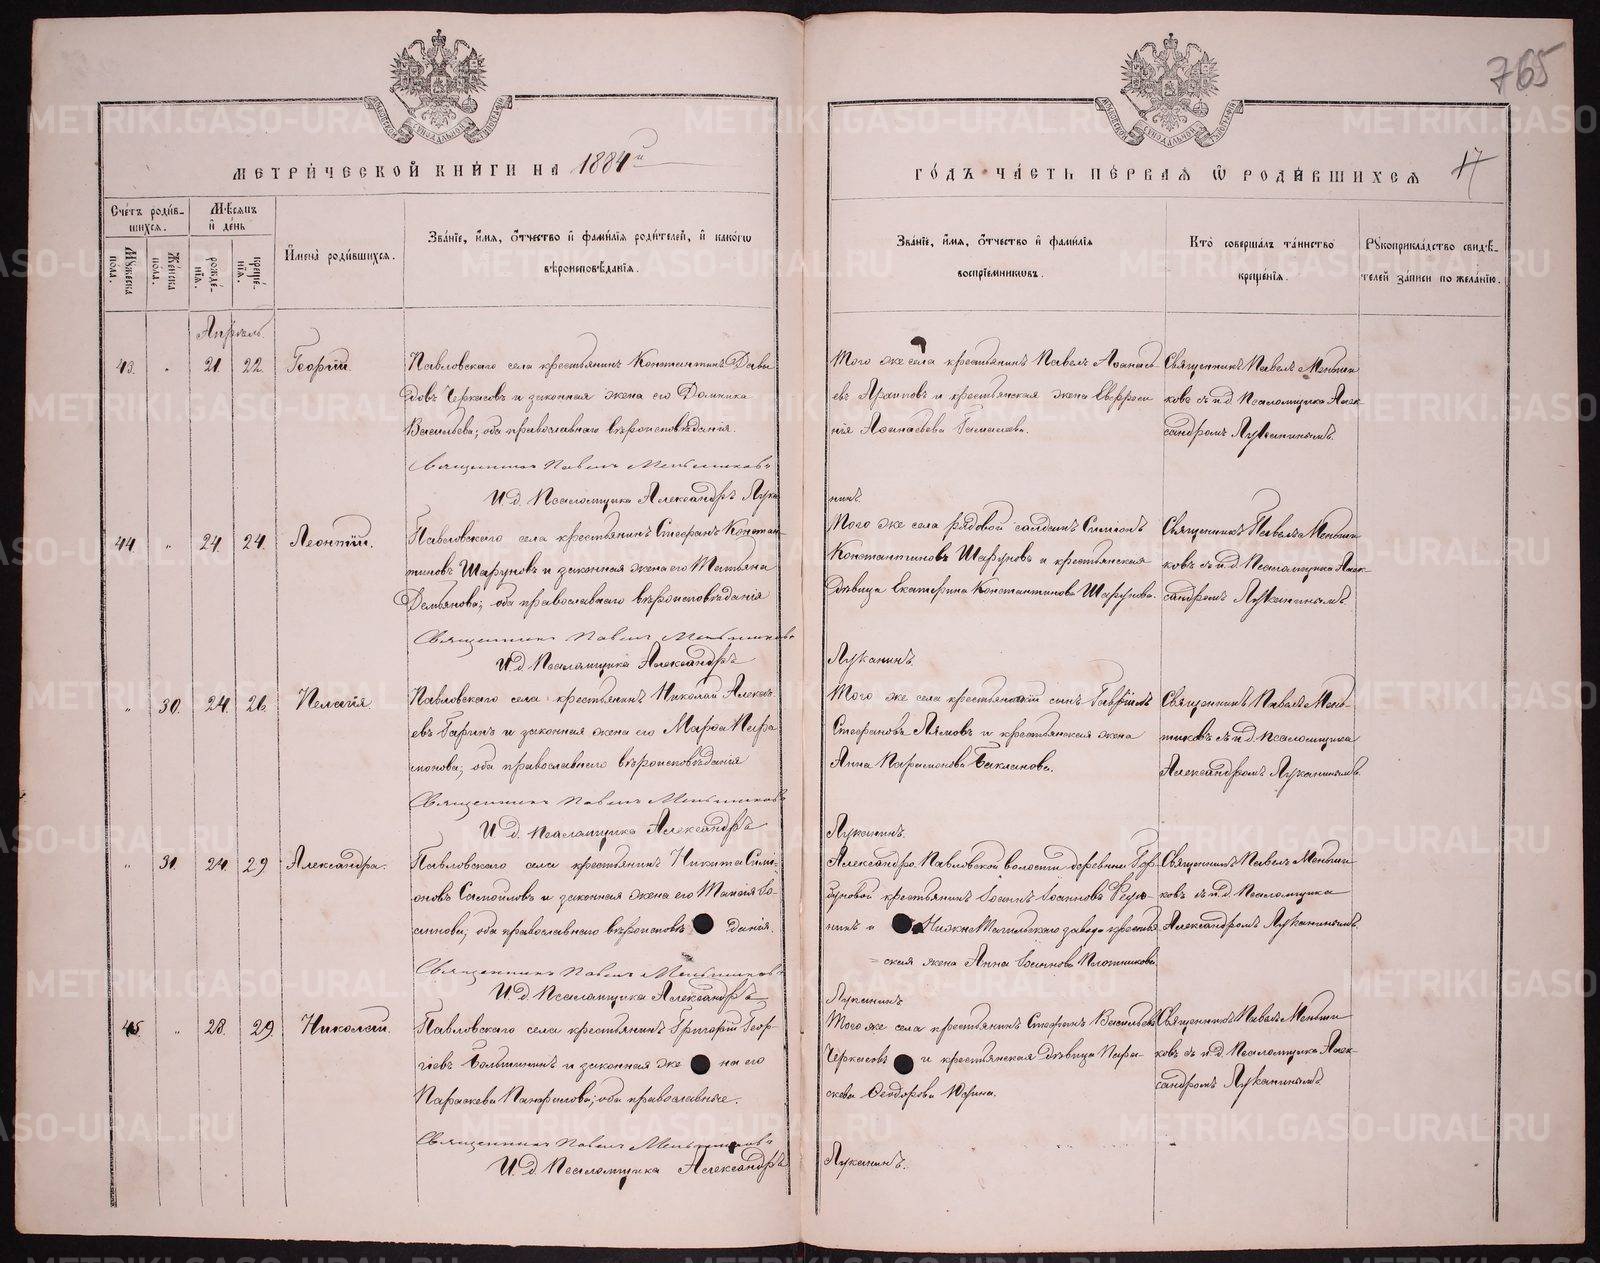 765
МЕТРИЧЕСКОЙ КНИГИ НА 1884й
ГОДЪ ЧАСТЬ ПЕРВАЯ Ѡ РОДИВШИХСЯ 17
Счетъ родившихся.
Мужеска пола.
Женска пола.
Мѣсяцъ и день
рожденія.
крещенія.
Имена родившихся.
Званіе, имя, отчество и фамилія родителей, и какого
вѣроисповѣданія.
Званіе, имя, отчество и фамилія
воспріемниковъ.
Кто совершалъ таинство
крещенія.
Рукоприкладство свидѣ-
телей записи по желанію.
Апрѣль
43. " 21. 22. Георгій.
Павловскаго села крестьянинъ Константинъ Давы
довъ Черкасовъ и законная жена его Домника
Васильева; оба православнаго вѣроисповѣданія.
Священникъ Павелъ Меньшиковъ
И. д. Псаломщика Александръ Лука
Того же села крестьянинъ Павелъ Аѳанась
евъ Архиповъ и крестьянская жена Евфроси
нія Аѳанасьева
нинъ.
Священникъ Павелъ Меньши
ковъ съ и. д. Псаломщика Алек
сандромъ Луканинымъ.
44. " 24. 24. Леонтій.
Павловскаго села крестьянинъ Стефанъ Констан-
тиновъ Шаруновъ и законная жена его Татьяна
Демьянова; оба православнаго вѣроисповѣданія
Священникъ Павелъ Меньшиковъ
И. д. Псаломщика Александръ
Того же села рядовой солдатъ Симеонъ
Константиновъ Шаруновъ и крестьянская
дѣвица Екатерина Константинова Шарунова.
Луканинъ.
Священникъ Павелъ Меньши
ковъ съ и. д. Псаломщика Алек
сандромъ Луканинымъ.
" 30. 24. 26. Пелагія.
Павловскаго села крестьянинъ Николай Алексѣ
евъ Гаринъ и законная жена его Марѳа Пара
монова; оба православнаго вѣроисповѣданія
Священникъ Павелъ Меньшиковъ
И. д. Псаломщика Александръ
Того же села крестьянскій сынъ Гавріилъ
Стефановъ Лямовъ и крестьянская жена
Анна Парамонова Бакланова.
Луканинъ.
Священникъ Павелъ Мень-
шиковъ съ и. д. Псаломщика
Александромъ Луканинымъ.
" 31. 24. 29 Александра.
Павловскаго села крестьянинъ Никита Симе-
оновъ Самойловъ и законная жена его Таисія Іо-
аннова; оба православнаго вѣроисповѣ данія.
Священникъ Павелъ Меньшиковъ
И. д. Псаломщика Александръ
Александро-Павловской волости деревни Гор-
буновой крестьянинъ Іоаннъ Іоанновъ
нинъ и Нижне Тагильскаго завода крестьян
ская жена Анна Іоаннова Плотникова.
Луканинъ
Священникъ Павелъ Меньши
ковъ съ и. д. Псаломщика
Александромъ Луканинымъ.
45 " 28. 29. Николай.
Павловскаго села крестьянинъ Григорій Геор-
гіевъ и законная же на его
Параскева Панфилова; оба православные.
Священникъ Павелъ Меньшиковъ
И. д. Псаломщика Александръ
Того же села крестьянинъ Стефанъ Васильевъ
Черкасовъ и крестьянская дѣвица Пара-
скева Ѳеодорова Юрина.
Луканинъ.
Священникъ Павелъ Меньши
ковъ съ и. д. Псаломщика Алек-
сандромъ Луканинымъ
METRIKI.GASO-URAL.RU